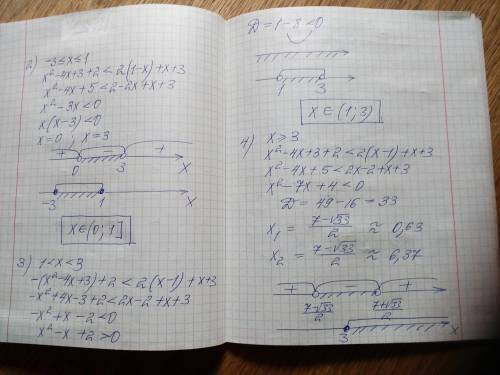 2) -3≤x≤1
x²-4x+3+2<2(1-x)+x+3
x²-4x+5<2-2x+x+3
x²-3x<0
x(x-3)<0
x=0 ; x=3
+ - +
0 3 x
-3 1 x
x∈(0;1]
3) 1<x<3
-(x²-4x+3)+2<2(x-1)+x+3
-x²+4x-3+2<2x-2+x+3
-x²+x-2<0
x²-x+2>0
D=1-8<0
1 3
x∈(1;3)
4) x≥3
x²-4x+3+2<2(x-1)+x+3
x²-4x+5<2x-2+x+3
x²-7x+4<0
D=49-16=33
x₁=(7-√33)/2≈0,63
x₂=(7-√33)/2≈6,37
+ - +
(7-√33)/2 (7+√33)/2
3 x